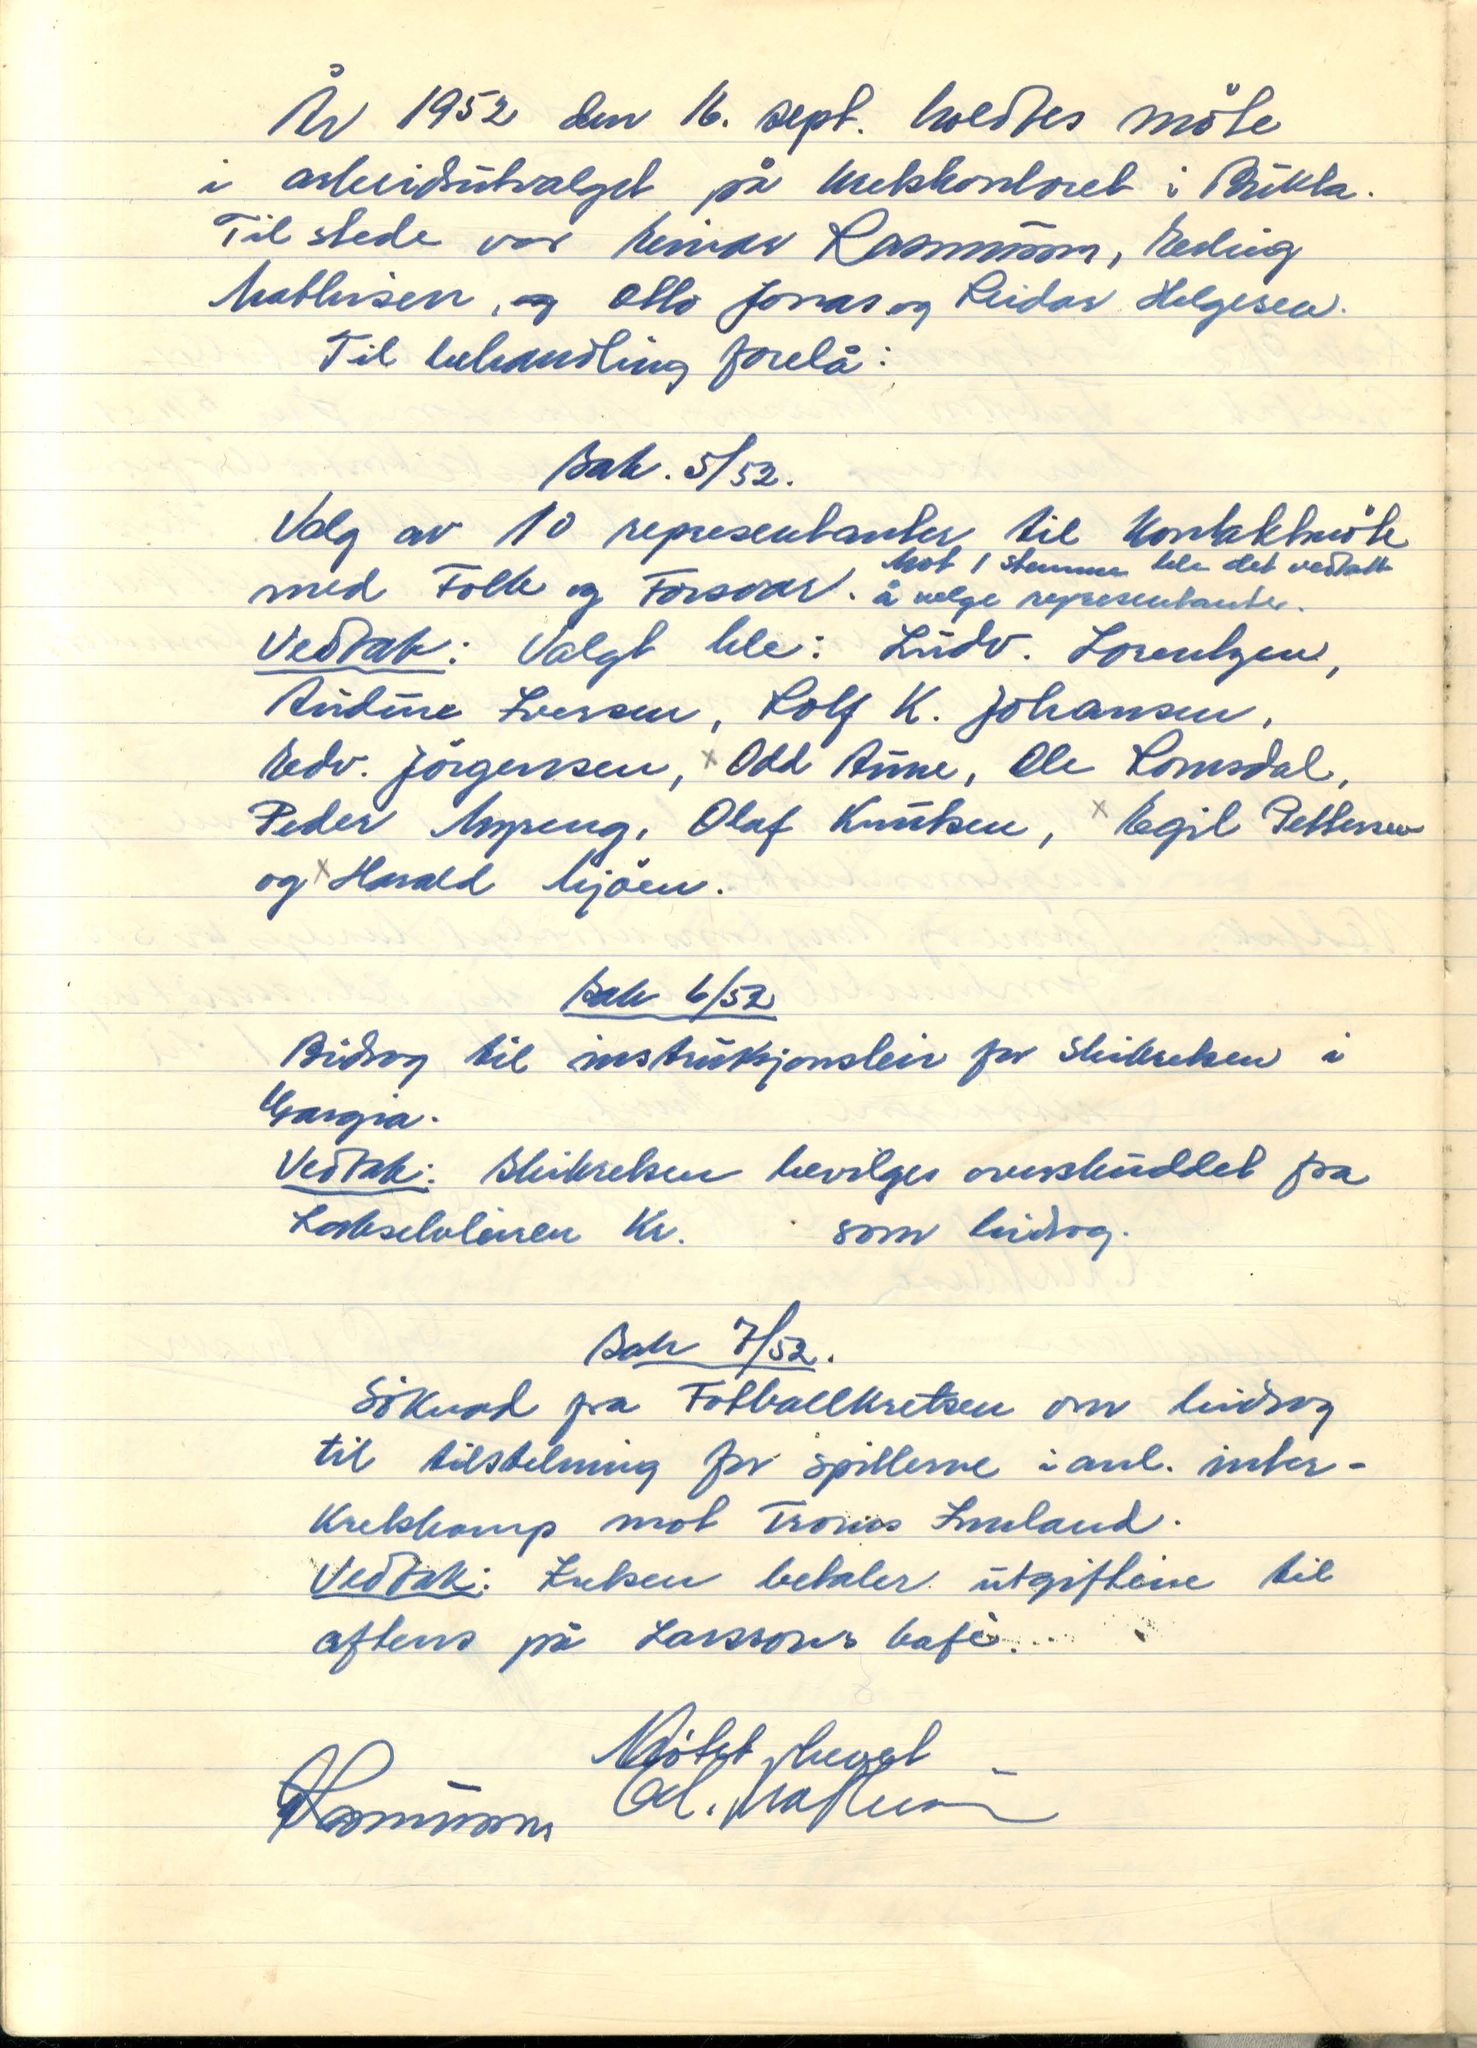 År 1952 den 16. sept. holdtes möte
i arbeidsutvalget på kretskontoret i Bukta.
Til stede var Reinar Rasmussen, Erling
Mathisen, og Otto Jonas og Reidar Helgesen.
Til behandling forelå:
Sak. 5/52.
Valg av 10 representanter til kontaktmöte
med Folk og Forsvar. Mot 1 stemme ble det vedtatt
å velge representanter.
Vedtak: Valgt ble: Ludv. Lorentzen,
Audune Iversen, Rolf K. Johansen,
Edv. Jörgensen, x Odd Aune, Ole Romsdal,
Peder Myreng, Olaf Knutsen, x Egil Pettersen
og x Harald Mjöen.
Sak 6/52
Bidrag til instruksjonsleir for skikretsen i
Gargia.
Vedtak: Skikretsen bevilges overskuddet fra
Lakselvleiren Kr. som bidrag.
Sak 7/52.
Söknad fra Fotballkretsen om bidrag
til tilstelning for spillerne i anl. inter-
kretskamp mot Troms Innland.
Vedtak: Kretsen betaler utgiftene til
aftens på Larssons kafè.
Mötet hevet